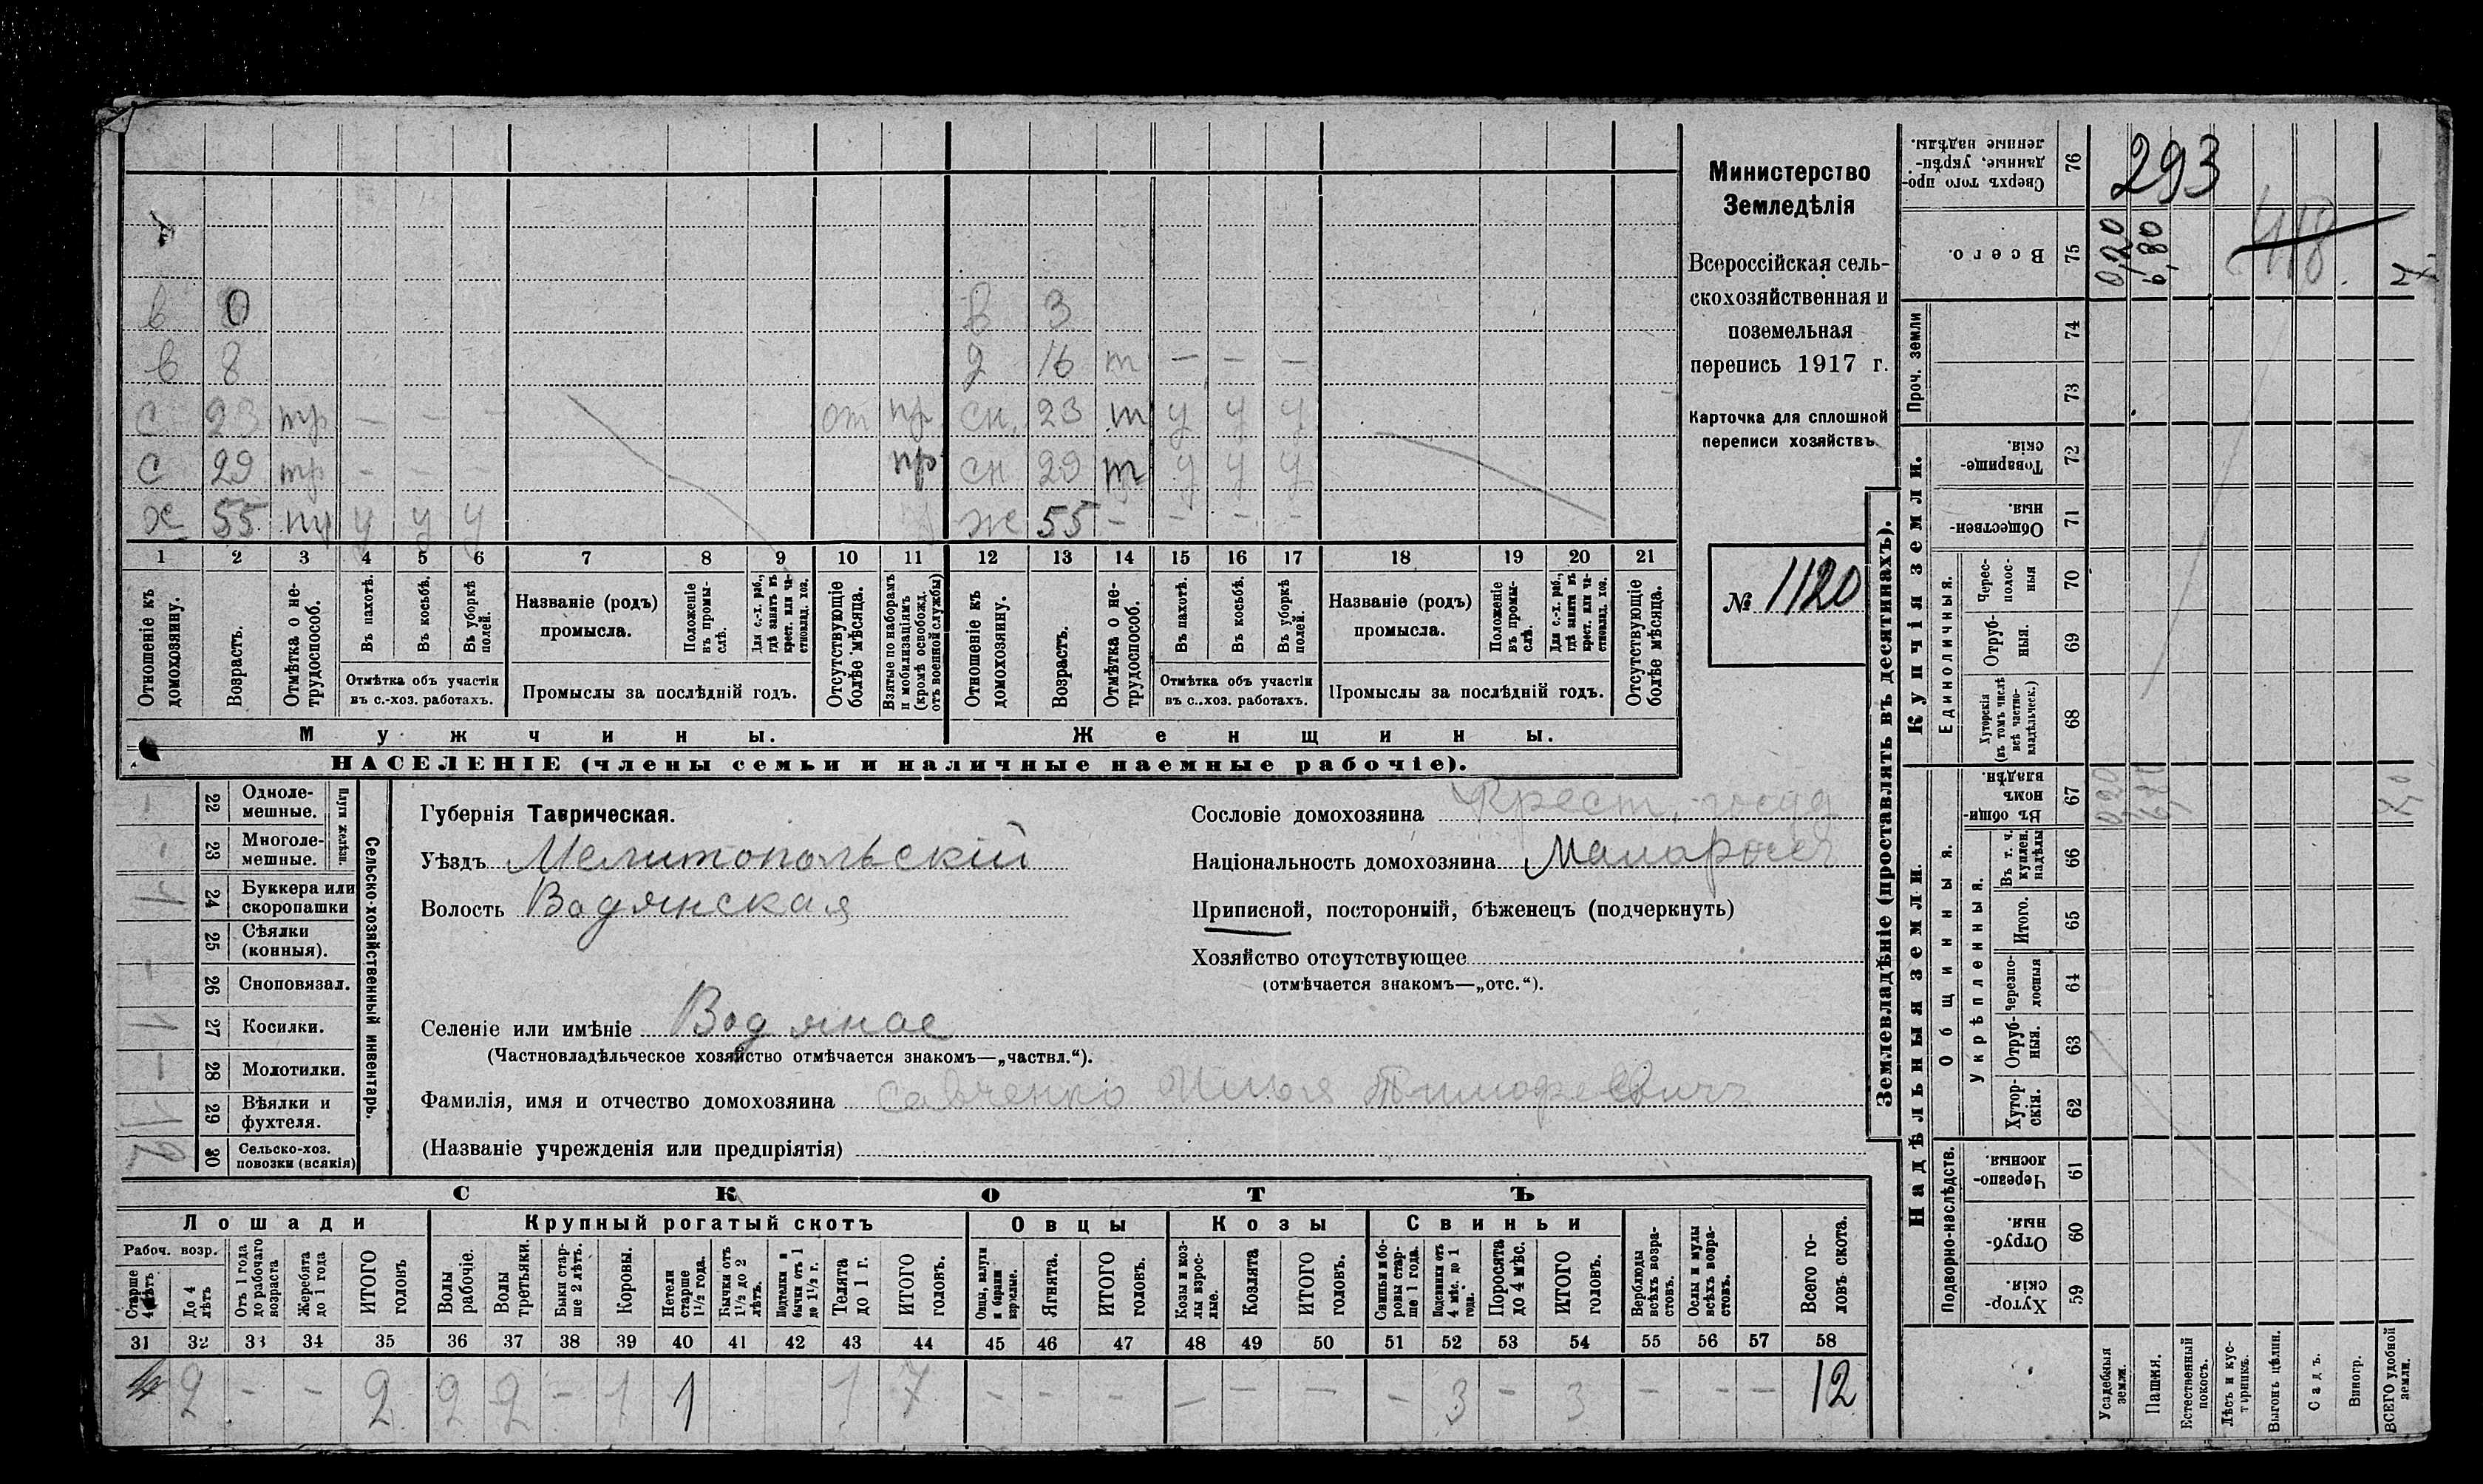 в 0 в 3
в 8 д 16 т — — —
с 23 тр — — — от пр сн. 23 т у у у
с 29 тр — — — пр сн 29 т у у у
х 55 тр у у у ж 55 — — — —
1 2 3 4 5 6 7 8 9 10 11 12 13 14 15 16 17 18 19 20 21
Отношеніе къ домохозяину.
Возрастъ.
Отмѣтка о не-
трудоспособ.
Въ пахотѣ.
Въ косьбѣ.
Въ уборкѣ полей.
Отмѣтка объ участіи
въ с.-хоз. работахъ.
Названіе (родъ)
промысла.
Положеніе въ промы-
слѣ.
Для с.-х. раб., гдѣ занятъ въ крест. или ча-
стновлад. хоз.
Промыслы за послѣдній годъ.
Отсутствующіе болѣе мѣсяца.
Взятые по наборамъ и мобилизаціямъ (кромѣ освобожд. отъ военной службы)
Отношеніе къ домохозяину.
Возрастъ.
Отмѣтка о не-
трудоспособ.
Въ пахотѣ.
Въ косьбѣ.
Въ уборкѣ полей.
Отмѣтка объ участіи
въ с..хоз. работахъ.
Названіе (родъ)
промысла.
Положеніе въ промы-
слѣ.
Для с.-х. раб., гдѣ занята въ крест. или ча-
стновлад. хоз.
Промыслы за послѣдній годъ.
Отсутствующіе болѣе мѣсяца.
Мужчины. Женщины.
НАСЕЛЕНІЕ (члены семьи и наличные наемные рабочіе).
Министерство
Земледѣлія
Всероссійская сель-
скохозяйственная и
поземельная
перепись 1917 г.
Карточка для сплошной
переписи хозяйствъ
№ 1120
Сельско-хозяйственный инвентарь.
Плуги желѣзн.
22 Одноле-
мешные. —
23 Многоле-
мешные. —
24 Буккера или
скоропашки 1
25 Сѣялки
(конныя). —
26 Сноповязал. —
27 Косилки. 1
28 Молотилки. —
29 Вѣялки и
фухтеля. 1
30 Сельско-хоз.
повозки (всякія) 2
Губернія Таврическая.
Уѣздъ Мелитопольскій
Волость Водянская
Селеніе или имѣніе Водяное
(Частновладѣльческое хозяйство отмѣчается знакомъ—„частвл.“).
Фамилія, имя и отчество домохозяина Савченко Илья Тимофеевичъ
(Названіе учрежденія или предпріятія)
Сословіе домохозяина Крест.
Національность домохозяина Малоросс
Приписной, посторонній, бѣженецъ (подчеркнуть)
Хозяйство отсутствующее
(отмѣчается знакомъ—„отс.“).
СКОТЪ
Лошади Крупный рогатый скотъ Овцы Козы Свиньи
Рабоч. возр.
Старше 4 лѣтъ
До 4 лѣтъ
Отъ 1 года до рабочаго возраста
Жеребята до 1 года
ИТОГО головъ
Волы рабочіе.
Волы третьяки.
Быки стар-
ше 2 лѣтъ.
Коровы.
Нетели старше 1½ года.
Бычки отъ 1½ до 2 лѣтъ.
Подтелки и бычки отъ 1 до 1½ г.
Телята до 1 г.
ИТОГО головъ.
Овцы, валухи и бараны взрослые.
Ягнята.
ИТОГО головъ.
Козы и коз-
лы взрос-
лые.
Козлята
ИТОГО головъ.
Свиньи бо-
ровы стар-
ше 1 года.
Подсвинки отъ 4 мѣс. до 1 года.
Поросята до 4 мѣс.
ИТОГО головъ.
Верблюды всѣхъ возра-
стовъ.
Ослы и мулы всѣхъ возра-
стовъ.
Всего го-
ловъ скота.
31 32 33 34 35 36 37 38 39 40 41 42 43 44 45 46 47 48 49 50 51 52 53 54 55 56 57 58
2 — — 2 2 2 — 1 1 1 7 — — — — — — — 3 — 3 — — — 12
Землевладѣніе (проставлять въ десятинахъ).
Купчія земли.
Надѣльныя земли.
Проч. земли
Единоличныя.
Общинныя.
Укрѣпленныя.
Подворно-наслѣдств.
76 Сверхъ того про-
данные, укрѣп-
ленные надѣлы.
75 Всего. 0,20 6,80
74
73
72 Товарище-
скія.
71 Обществен-
ныя.
70 Черес-
полос-
ныя
69 Отруб-
ныя.
68 Хуторскія (въ томъ числѣ всѣ частно-
владѣльческ.)
67 Въ общин-
номъ владѣн. 0,20 6,80
66 Въ т. ч. куплен. надѣлы
65 Итого.
64 Черезпо-
лосныя
63 Отруб-
ныя.
62 Хутор-
скія.
61 Черезпо-
лосныя.
60 Отруб-
ныя.
59 Хутор-
скія.
Усадебныя земли.
Пашня.
Естественный покосъ.
Лѣсъ и кус-
тарникъ.
Выгонъ цѣлин.
Садъ.
Виногр.
ВСЕГО удобной земли.
293
418